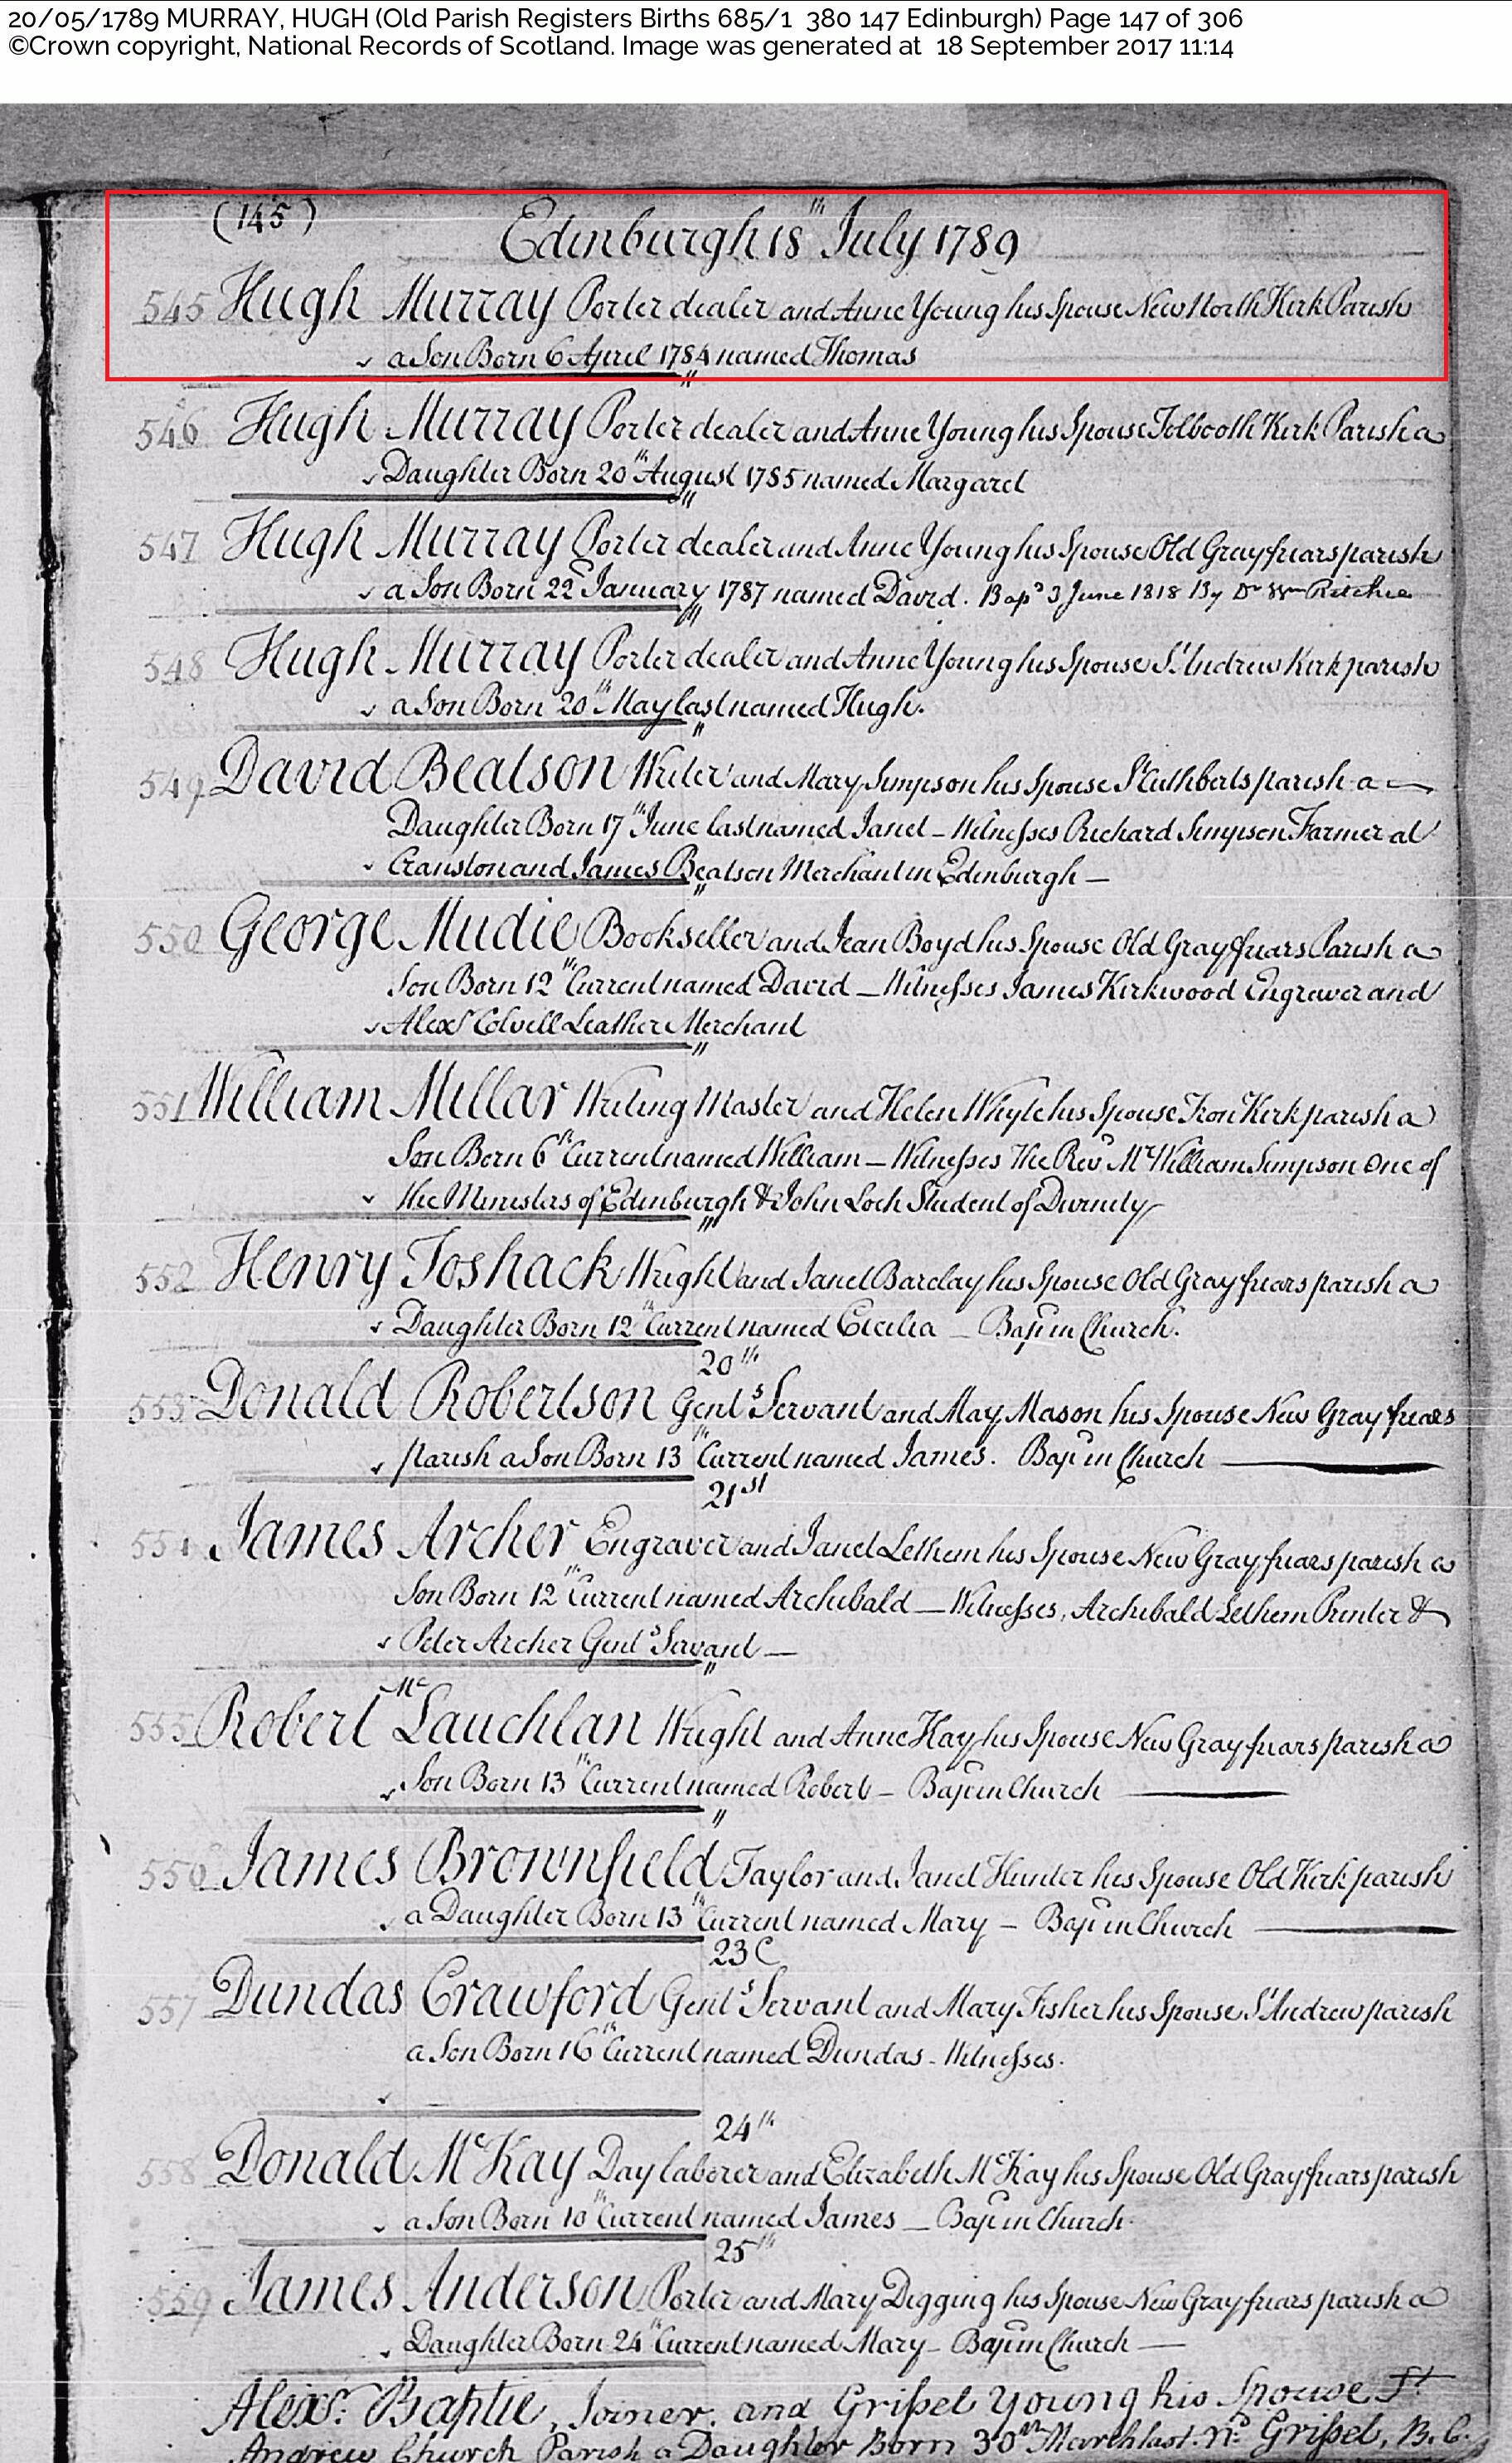 20/05/1789 MURRAY, HUGH (Old Parish Registers Births 685/1 380 147 Edinburgh) Page 147 of 306
©Crown copyright, National Records of Scotland. Image was generated at 18 September 2017 11:14
(145)
Edinburgh 18th July 1789
545 Hugh Murray Porter dealer and Anne Young his Spouse New North Kirk Parish
a Son Born 6 April 1784 named Thomas
"
546 Hugh Murray Porter dealer and Anne Young his Spouse Tolbooth Kirk Parish a
Daughter Born 20th August 1785 named Margaret
"
547 Hugh Murray Porter dealer and Anne Young his Spouse Old Grayfriars parish
a Son Born 22d January 1787 named David. Bapd 3 June 1818 By Dr Wm Ritchie
"
548 Hugh Murray Porter dealer and Anne Young his Spouse St Andrew Kirk parish
a Son Born 20th May last named Hugh.
"
549 David Beatson Writer and Mary Simpson his Spouse St Cuthberts parish a —
Daughter Born 17th June last named Janet – Witnesses Richard Simpson Farmer at
Cranston and James Beatson Merchant in Edinburgh —
"
550 George Mudie Bookseller and Jean Boyd his Spouse Old Grayfriars Parish a
Son Born 12th Current named David — Witnesses James Kirkwood Engraver and
Alexr Colvell Leather Merchant
"
551 William Millar Writing Master and Helen Whyte his Spouse Tron Kirk parish a
Son Born 6th Current named William — Witnesses The Revd Mr William Simpson one of
the Ministers of Edinburgh & John Loch Student of Divinity
"
552 Henry Toshack Wright and Janet Barclay his Spouse Old Grayfriars parish a
Daughter Born 12th Current named Cecilia — Bap in Church.
20th
553 Donald Robertson Gentls Servant and May Mason his Spouse New Grayfriars
parish a Son Born 13th Current named James. Bap in Church
21st
554 James Archer Engraver and Janet Lethem his Spouse New Grayfriars parish a
Son Born 12th Current named Archibald — Witnesses, Archibald Lethem Printer &
Peter Archer Gentls Servant —
"
555 Robert McLauchlan Wright and Anne Hay his Spouse New Grayfriars parish a
Son Born 13th Current named Robert – Bap in Church
"
556 James Brownfield Taylor and Janet Hunter his Spouse Old Kirk parish
a Daughter Born 13th Current named Mary – Bap in Church
23d
557 Dundas Crawford Gentls Servant and Mary Fisher his Spouse St Andrew parish
a Son Born 16th Current named Dundas – Witnesses.
24th
558 Donald McKay Day laborer and Elizabeth McKay his Spouse Old Grayfriars parish
a Son Born 10th Current named James — Bap in Church
25th
559 James Anderson Porter and Mary Digging his Spouse New Grayfriars parish a
Daughter Born 24th Current named Mary – Bap in Church —
Alexr: Baptie, Joiner, and Grissel Young his Spouse St
Andrew Church Parish a Daughter Born 30th March last. nd Grissel, B. C.